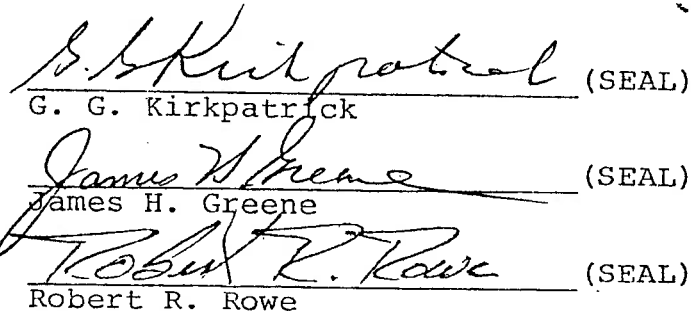 G. G. Kirkpatrick (SEAL)
G. G. Kirkpatrick
James H Greene (SEAL)
James H. Greene
Robert R. Rowe (SEAL)
Robert R. Rowe